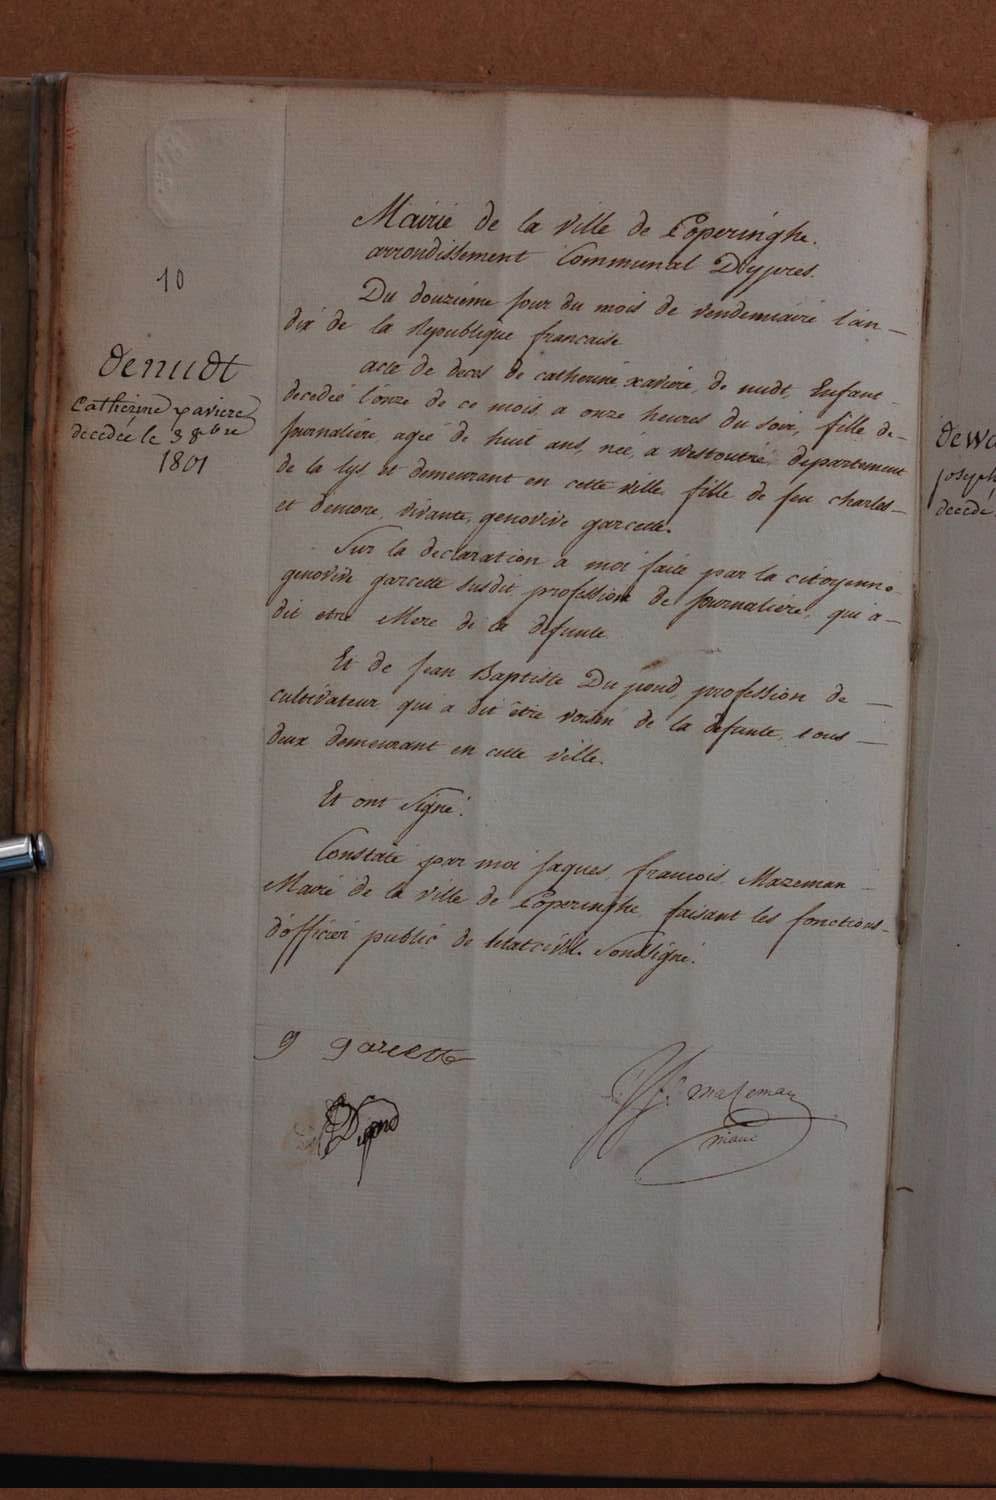 10
denudt
Catherine xaviere
decedée le 3 8bre
1801
Mairie de la ville de Poperinghe.
arrondissement Communal D'ypres.
Du douzieme jour du mois de vendemiaire l'an —
dix de la Republique francaise
acte de deces de catherine xaviere, de nudt, Enfant
decedée l'onze de ce mois, a onze heures du soir, fille de —
journaliere, ageé de huit ans, neé, a Westoutre, departement
de la lys, et demeurant en cette ville, fille de feu charles —
et demeore, vivante, genovive garcette.
Sur la declaration a moi faite par la citoyenne
genovive garcette susdit, profession de journaliere, qui a —
dit etre Mere de la defunte
Et de Jean Baptiste Dupond, profession de —
cultivateur qui a dit être voisin de la defunte, tous —
deux demeurant en cette ville.
Et ont signé.
Constaté par moi Jaques francois Mazeman —
Maire de la ville de Poperinghe, faisant les fonctions —
d'officier public de letat civil. Soussigné.
g garcette
Dupond
J f Mazeman
maire
dewa
joseph
decedé